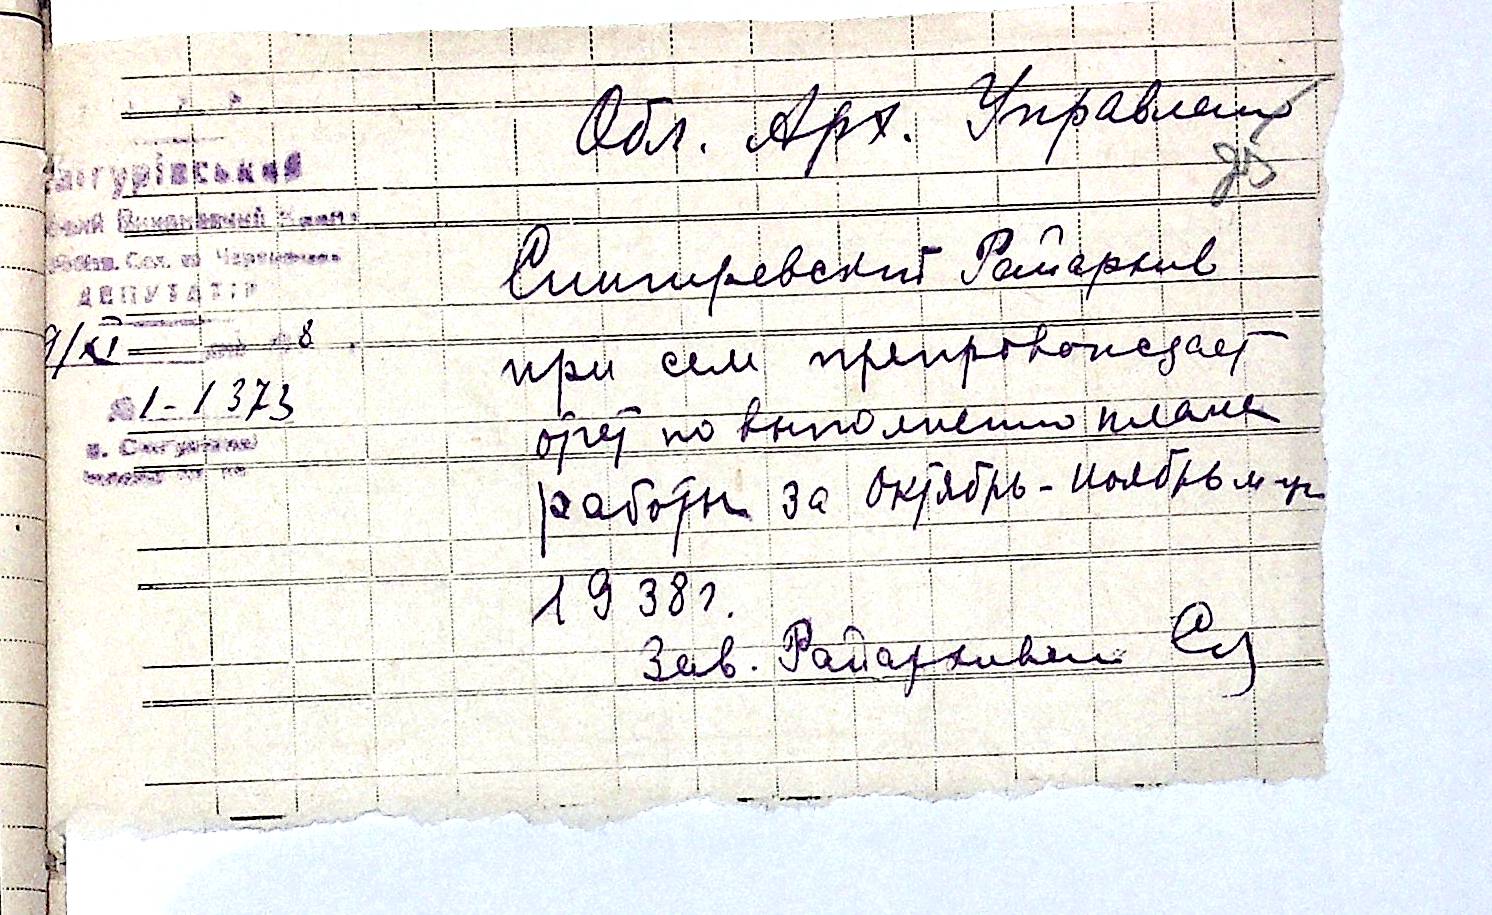 Снигурівський
Виконавчий Коміт
Сел. та Черв
ДЕПУТАТІВ
9/XI 8
№ 1-1373
Обл. Арх. Управлению
Снигиревский Райархив
при сем препровождает
отчет по выполнению плана
работы за октябрь-ноябрь м-цы
1938г.
Зав. Райархивом